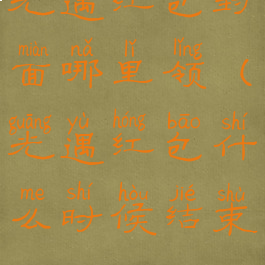 光遇红包的
miàn nǎ lǐ lǐng
面哪里领（
guāng yù hóng bāo shí
光遇红包什
me shí hòu jié shù
么时候结束